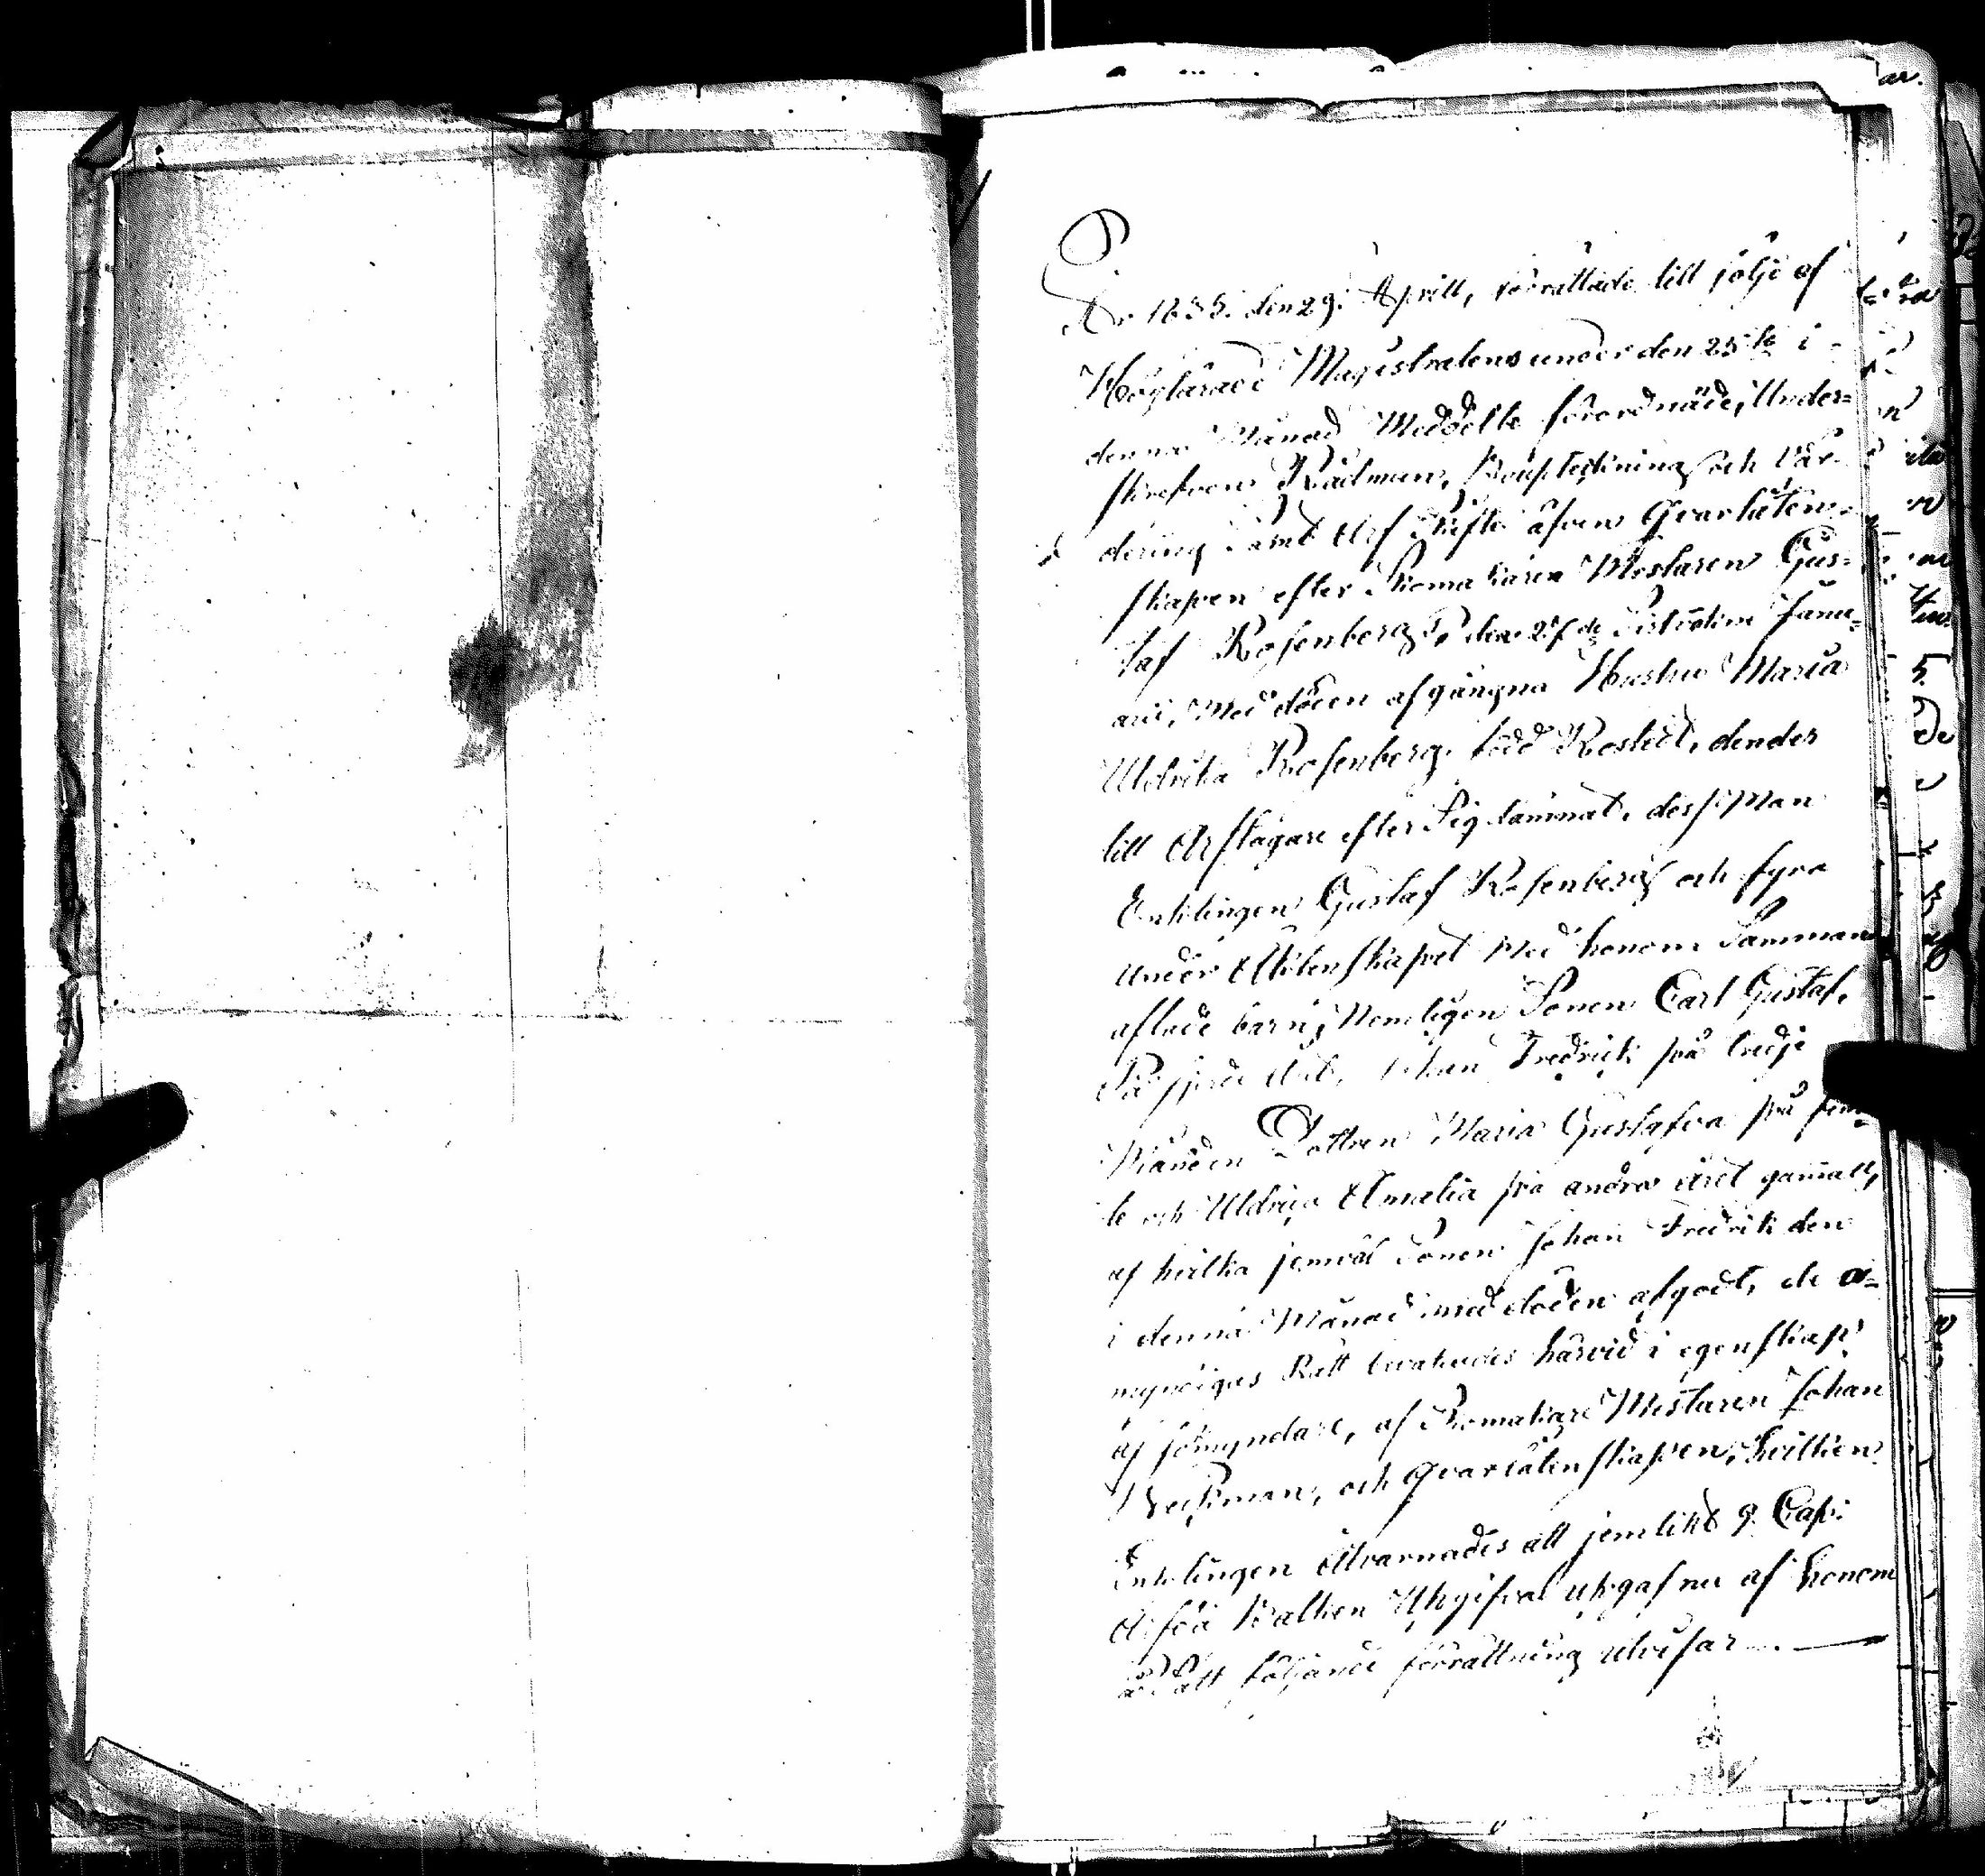 År 1835. den 29. Aprill, förrättade till följe af
Höglärade Magistratens under den 25te i
denna Månad Meddelte förordnade, Under=
skrefven Rådman, Bouptekning och Vär-
dering samt Arf Skifte äfven Qvarlåten-
skapen efter Skomakare Mestaren Gus=
taf Rosenbergs, den 27de Sistvedne Janu=
arii, Med döden afgångna Hustru Maria
Uldrika Rosenberg född Rostedt, den der
till Arftagare efter Sig lämnat, dess Man
Enklingen Gustaf Rosenberg och fyra
under Äktenskapet Med honom Samman
aflade barn; Nemligen Sonen Carl Gustaf,
På fjerde året, Johan Fredrick på tredje
Månden Dottren Maria Gustafva på fem=
te och Uldrica Amalia på andra året gammal,
af hvilka jemväl Sonen Johan Fredrik den
i denna Månad med döden afgådt, de o=
myndiges Rätt bevakades härvid i egenskap
af förmyndare, af Skomakare Mestaren Johan
och Qvarlåtenskapen, hvilken
Enklingen åtvarnades att jemlikt 9. Cap:
Ärfda Balken Uppgifva uppgafna af honom
Sätt följande förrättning utvisar